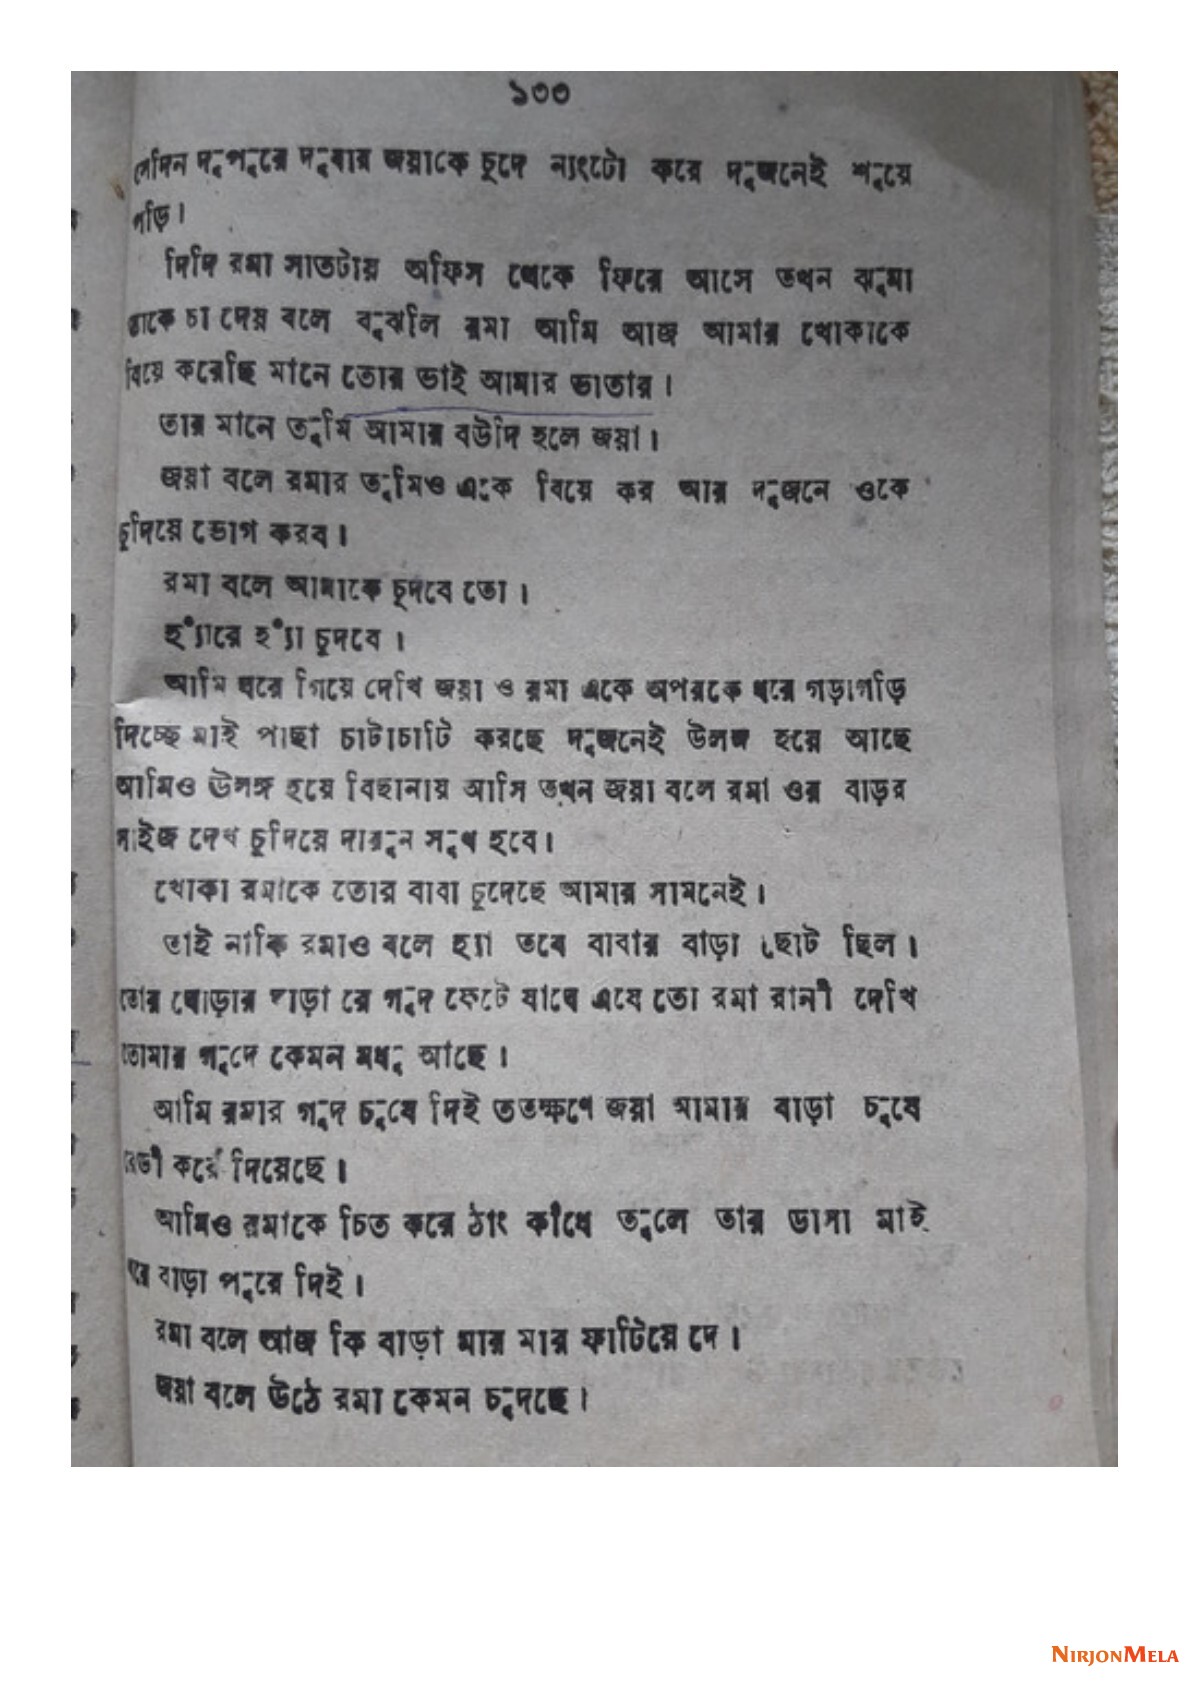 ১৩৩
সেদিন দুপুরে দুবার জয়াকে চুদে ন্যংটো করে দুজনেই শুয়ে
পড়ি।
দিদি রমা সাতটায় অফিস থেকে ফিরে আসে তখন ঝুমা
তাকে চা দেয় বলে বুঝলি রমা আমি আজ আমার খোকাকে
বিয়ে করেছি মানে তোর ভাই আমার ভাতার।
তার মানে তুমি আমার বউদি হলে জয়া।
জয়া বলে রমার তুমিও একে বিয়ে কর আর দুজনে ওকে
চুদিয়ে ভোগ করব।
রমা বলে আমাকে চুদবে তো।
হ্যাঁরে হ্যাঁ চুদবে।
আমি ঘরে গিয়ে দেখি জয়া ও রমা একে অপরকে ধরে গড়াগড়ি
দিচ্ছে মাই পাছা চাটাচাটি করছে দুজনেই উলঙ্গ হয়ে আছে
আমিও উলঙ্গ হয়ে বিছানায় আসি তখন জয়া বলে রমা ওর বাড়র
সাইজ দেখ চুদিয়ে দারুন সুখ হবে।
খোকা রমাকে তোর বাবা চুদেছে আমার সামনেই।
তাই নাকি রমাও বলে হ্যা তবে বাবার বাড়া ছোট ছিল।
তোর ঘোড়ার বাড়া রে গুদ ফেটে যাবে এযে তো রমা রানী দেখি
তোমার গুদে কেমন মধু আছে।
আমি রমার গুদ চুষে দিই ততক্ষণে জয়া আমার বাড়া চুষে
রেডী করে দিয়েছে।
আমিও রমাকে চিত করে ঠাং কাঁধে তুলে তার ডাসা মাই
ধরে বাড়া পুরে দিই।
রমা বলে আজ কি বাড়া মার মার ফাটিয়ে দে।
জয়া বলে উঠে রমা কেমন চুদছে।
NIRJONMELA